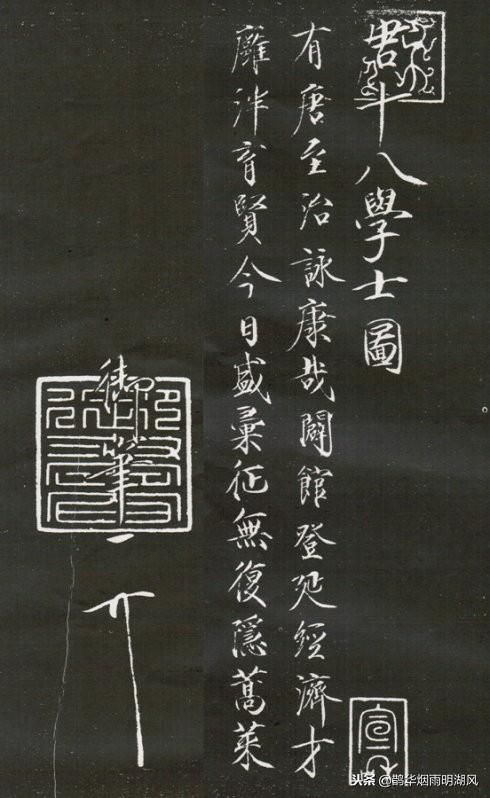 十八學士圖
有唐至治詠康哉闢館登延經濟才
廱泮育賢今日盛彙征無復隱蒿萊
御筆
宣
头条 @鹊华烟雨明湖风